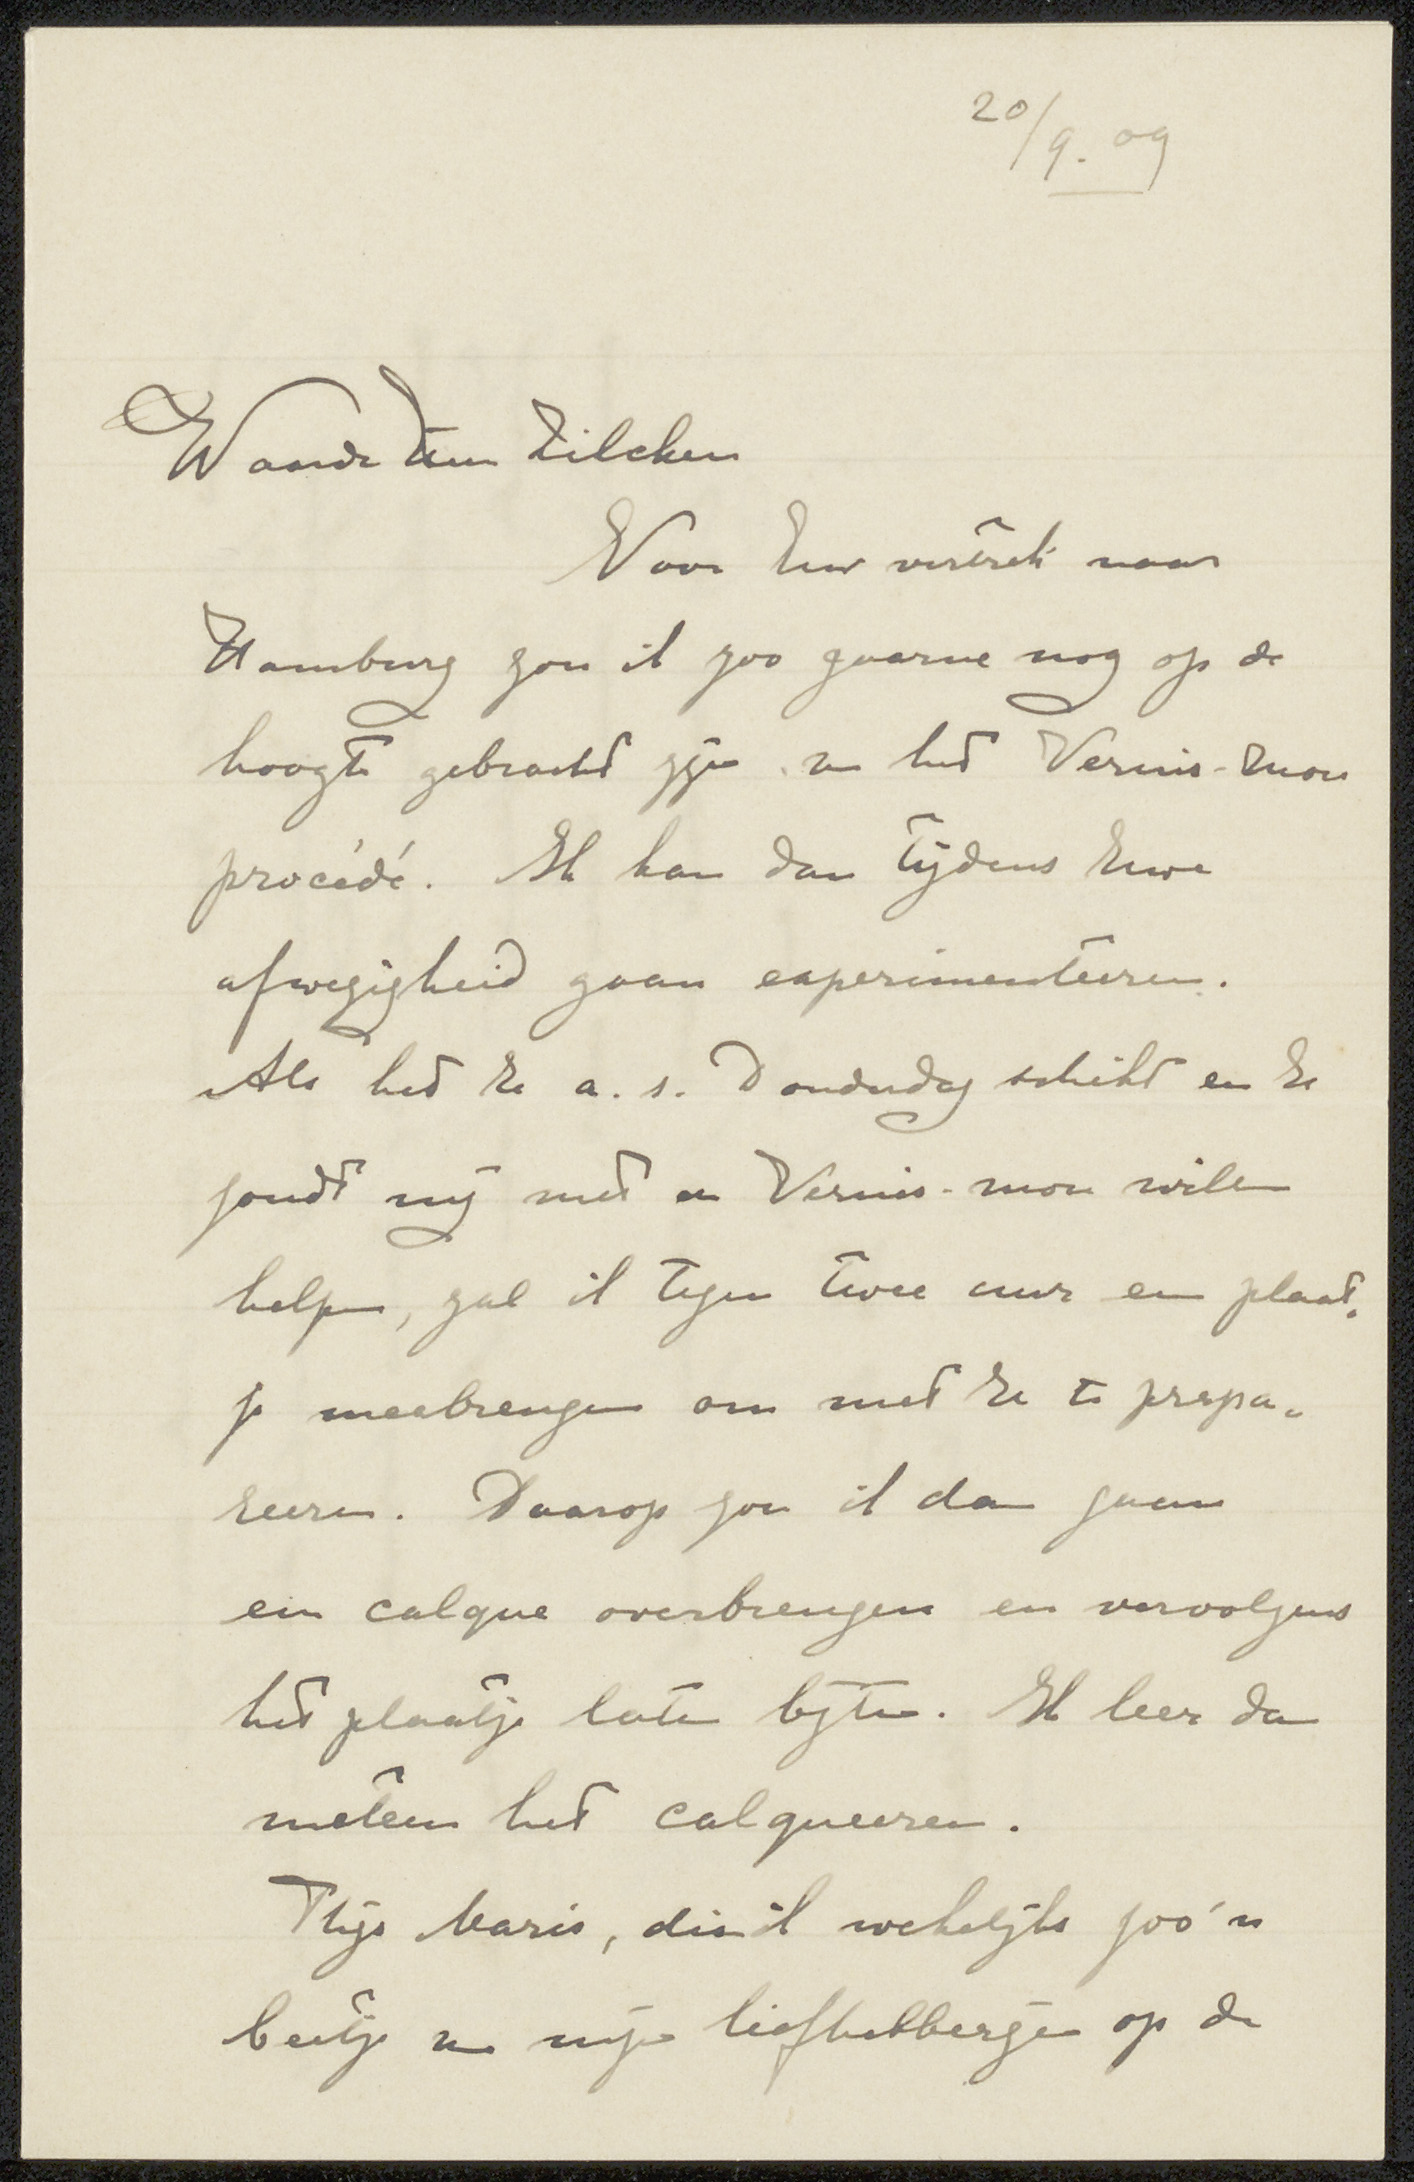 20/9. 09
Waarde Heer Zilcken
Voor Uw vertrek naar
Hamburg zou ik zoo gaarne nog op de
hoogte gebracht zijn v. het Vernis-mou
procédé. Ik kan dan tijdens Uwe
afwezigheid gaan experimenteeren.
Als het U a. s. Donderdag schikt en U
zoudt mij met de Vernis-mou willen
helpen, zal ik tegen twee uur een plaat-
je meebrengen om met U te prepa-
reeren. Daarop zou ik dan gaan
een calque overbrengen en vervolgens
het plaatje laten bijten. Ik leer dan
meteen het calqueeren.
Thijs Maris, die ik wekelijks zoo'n
beetje v. mijn liefhebberijen op de